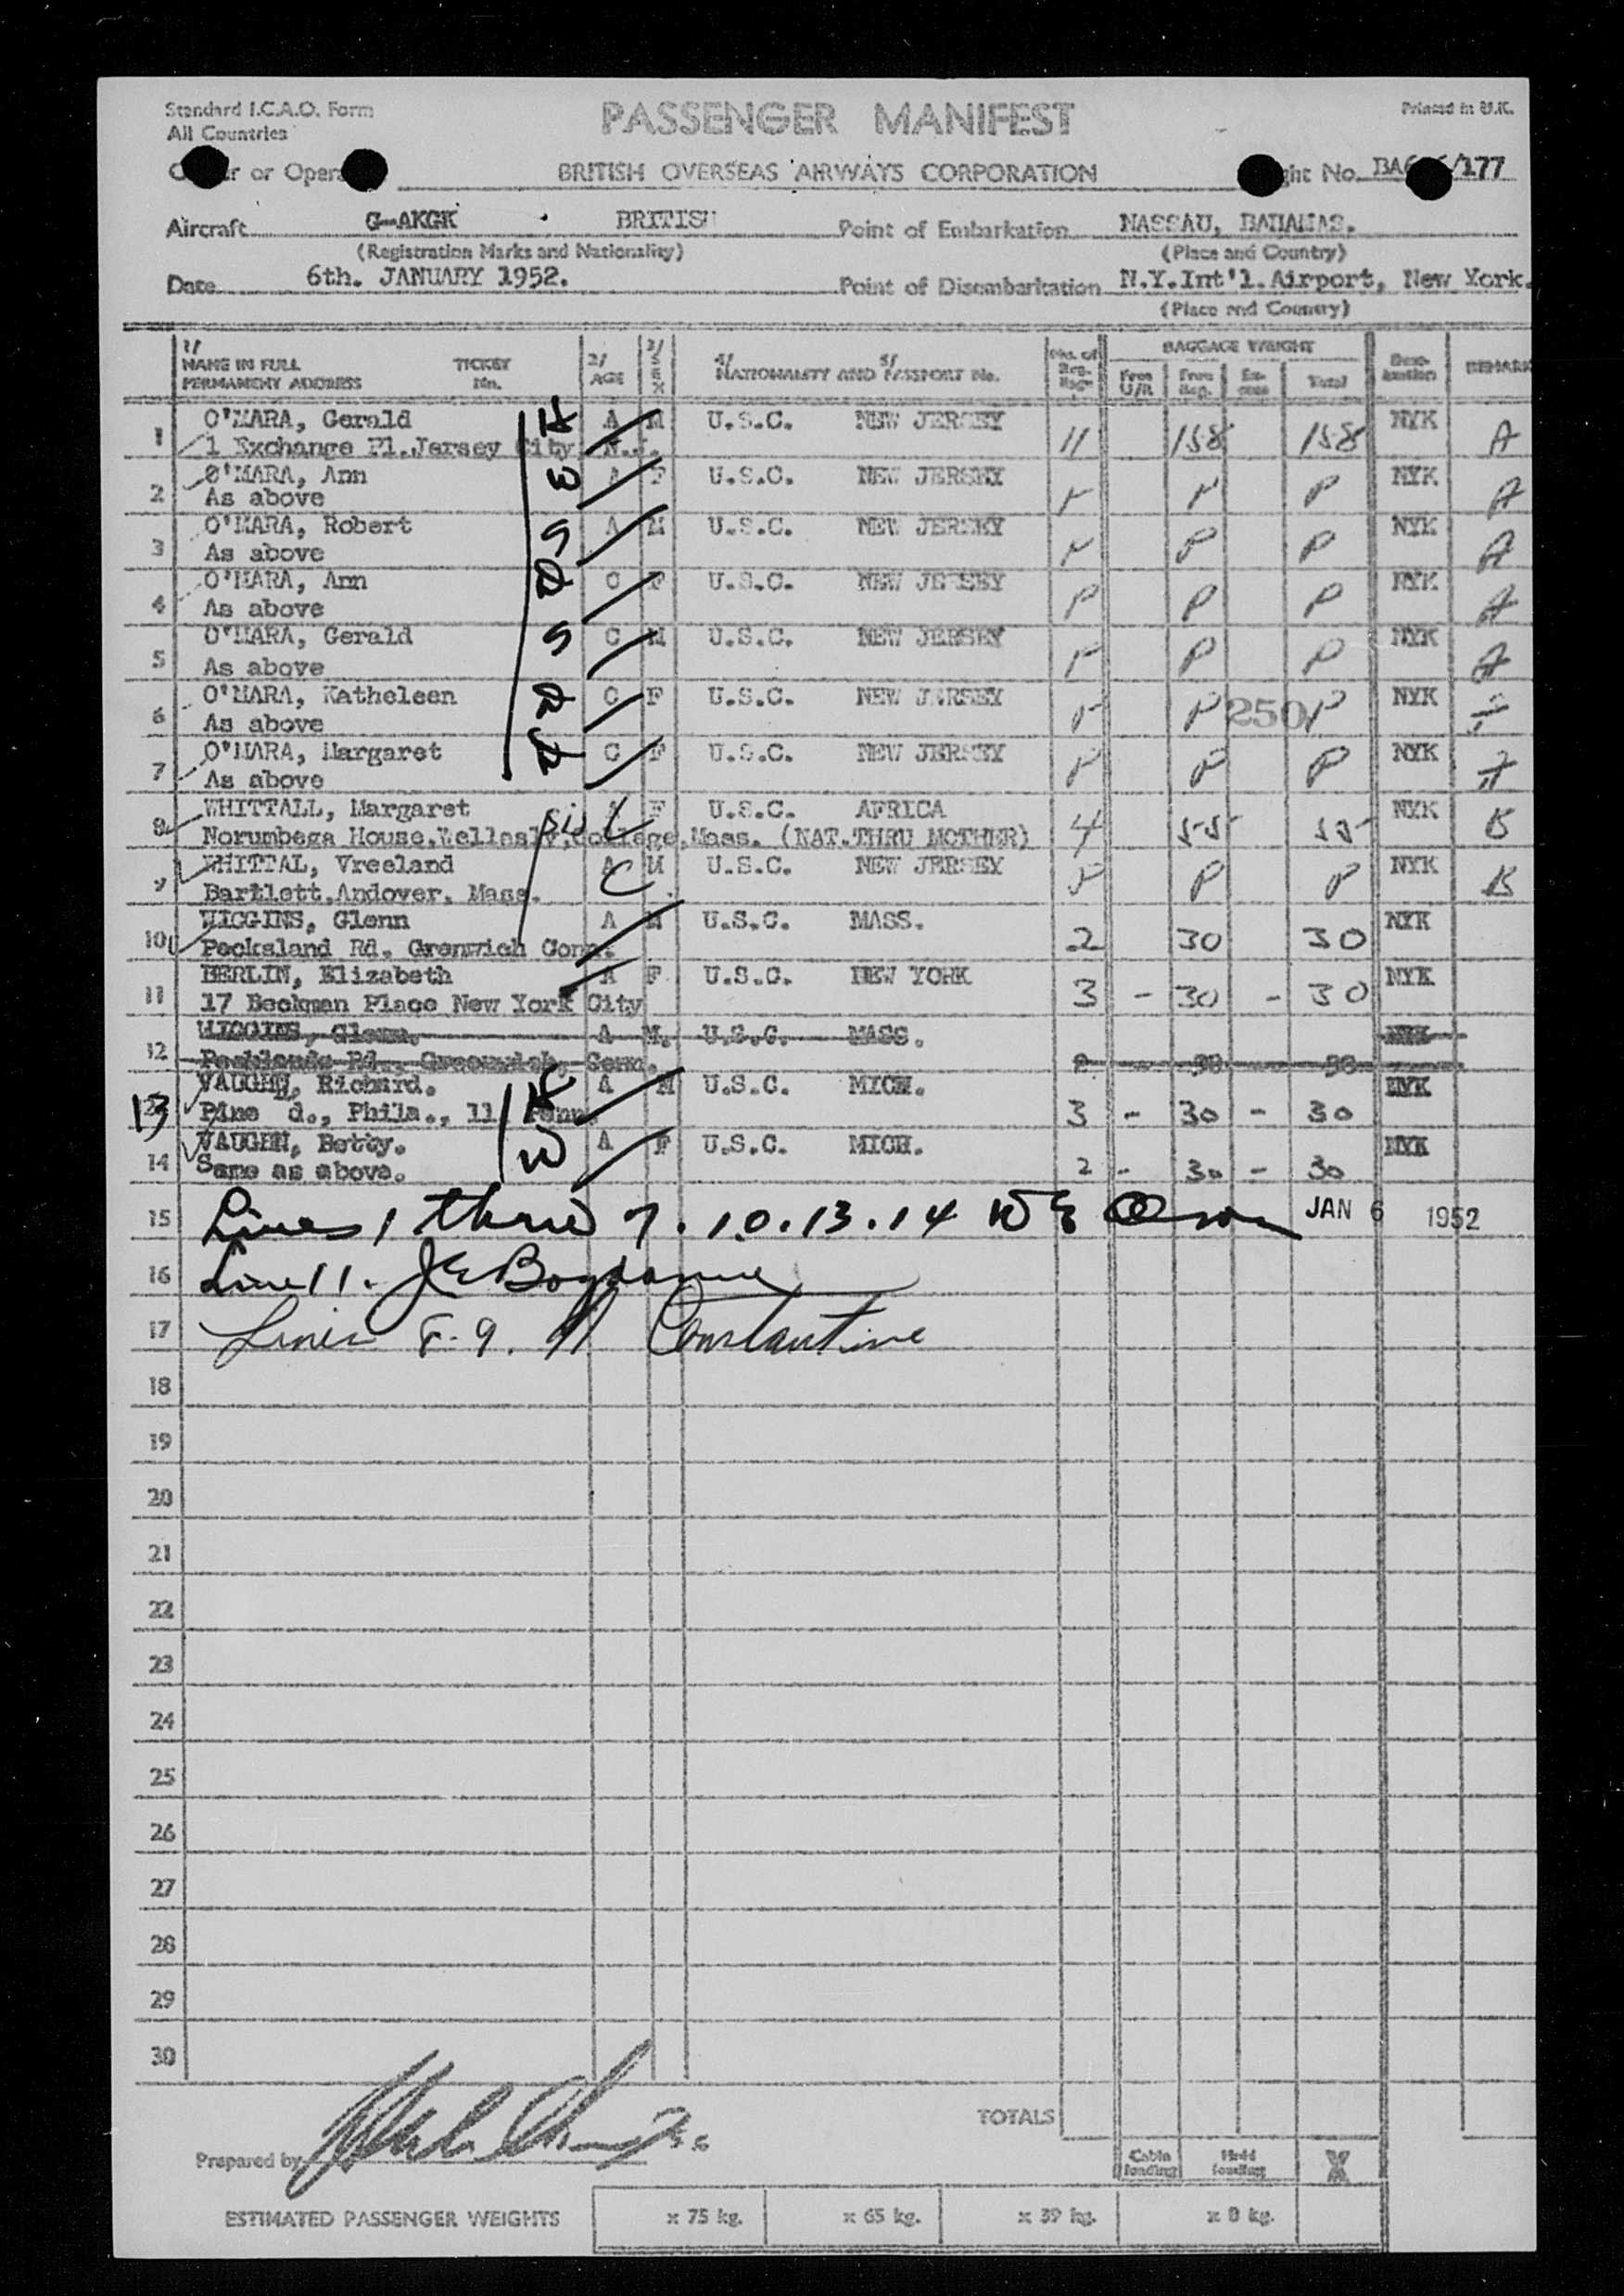 Standard I.C.A.O. Form
All Countries
PASSENGER MANIFEST
Printed in U.K.
or Oper
BRITISH OVERSEAS AIRWAYS CORPORATION
ght No. BA /177
Aircraft G-AKGK BRITISH
Point of Embarkation NASSAU, BAHAMAS.
(Registration Marks and Nationality)
(Place and Country)
Date 6th. JANUARY 1952.
Point of Disembarkation N.Y.Int'l.Airport, New York.
(Place and Country)
1/ NAME IN FULL PERMANENT ADDRESS TICKET No. 2/ AGE 3/ SEX 4/ NATIONALITY AND 5/ PASSPORT No. No. of BAGGAGE WEIGHT Free U/R Free Reg. Ex-cess Total Dest-ination REMARK
O'MARA, Gerald H A M U.S.C. NEW JERSEY NYK
1 1 Exchange Pl.Jersey City N.J. 11 158 158 A
O'MARA, Ann W A F U.S.C. NEW JERSEY NYK
2 As above P P P A
O'MARA, Robert S A M U.S.C. NEW JERSEY NYK
3 As above P P P A
O'MARA, Ann D C F U.S.C. NEW JERSEY NYK
4 As above P P P A
O'MARA, Gerald S C M U.S.C. NEW JERSEY NYK
5 As above P P P A
O'MARA, Katheleen D C F U.S.C. NEW JERSEY NYK
6 As above P P 250 P
O'MARA, Margaret D C F U.S.C. NEW JERSEY NYK
7 As above P P P A
WHITTALL, Margaret A F U.S.C. AFRICA NYK
8 Norumbega House,Wellesly,College,Mass. (NAT.THRU MOTHER) 4 55 55 B
WHITTAL, Vreeland A M U.S.C. NEW JERSEY NYK
9 Bartlett.Andover, Mass. C P P P B
WIGGINS, Glenn A M U.S.C. MASS. NYK
10 Pecksland Rd. Grenwich Conn. 2 30 30
BERLIN, Elizabeth A F U.S.C. NEW YORK NYK
11 17 Beekman Place New York City 3 - 30 - 30
WIGGINS, Glenn. A M. U.S.C. MASS. NYK
12 Rd., Greenwich, Conn.
VAUGHN, Richard. H A M U.S.C. MICH. NYK
13 Pine d., Phila., 11 Penn 3 - 30 - 30
VAUGHN, Betty. W A F U.S.C. MICH. NYK
14 Same as above. 2 - 30 - 30
15 Lines 1 thru 7. 10.13.14 JAN 6 1952
16 Line 11.
17 Lines 8-9. Constantine
18
19
20
21
22
23
24
25
26
27
28
29
30
TOTALS
Prepared by
Cabin loading Hold loading X
ESTIMATED PASSENGER WEIGHTS x 75 kg. x 65 kg. x 39 kg. x 8 kg.